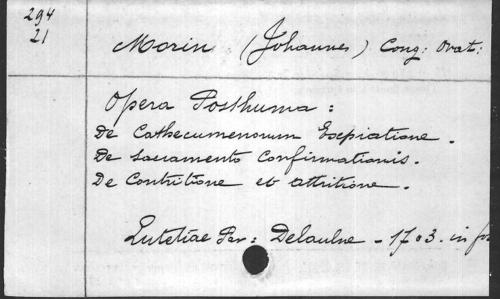 294
21
Morin (Johannes) Cong: Orat:
Opera Posthuma:
De Cathecumenorum Expiatione.
De Sacramento Confirmationis.
De Contritione et attritione.
Lutetiae Par: Delaulne - 1703. in fo